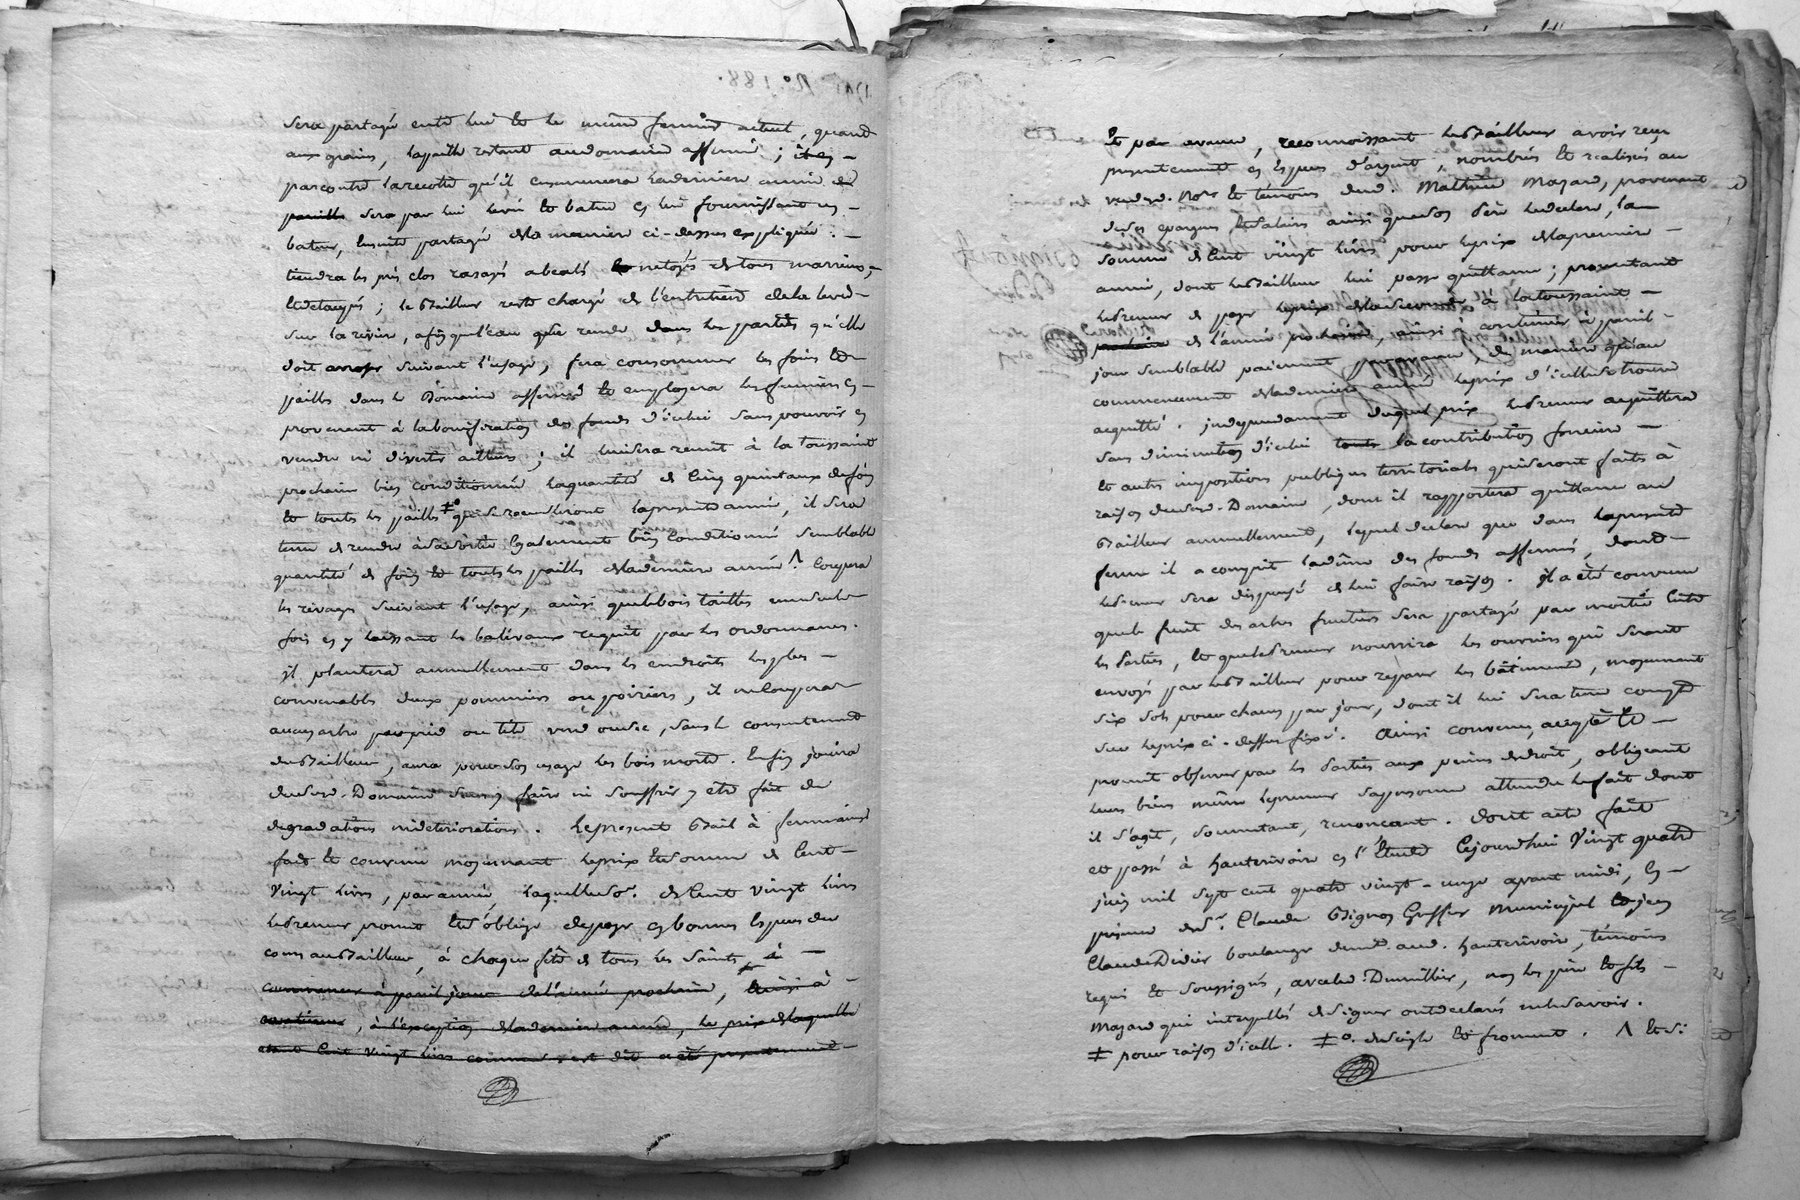 sera partagé entre lui et le meme fermier actuel, quand
aux grains, la paille restant au domaine affermé ;
par contre la recolte qu'il ensemencera la derniere année
sera par lui levée et batue en lui fournissant un
bateur, ensuite partagée de la maniere ci-dessus expliquée.
tiendra les prés clos rasagés abealés et netoyés de tous marrins
et detaupés ; le Bailleur reste chargé de l'entretien de la levée
sur la riviere, afin que l'eau se rende dans les parties qu'elle
doit arroser suivant l'usage, fera consommer les foins et
pailles dans le Domaine affermé et employera les fumiers en
provenant à la bonification des fonds d'icelui sans pouvoir en
vendre ni divertir ailleurs ; il lui sera remit à la toussaint
prochaine bien conditionnée la quantité de cinq quintaux de foin
et touts les pailles qui se recueilleront la presente année, il sera
tenu de rendre à sa sortie egalement bien conditionné semblable
quantité de foin et touts les pailles de la derniere année. Coupera
les rivages suivant l'usage, ainsi que les bois taillis une seule
fois en y laissant les balivaux requit par les ordonnances.
il plantera annuellement dans les endroits les plus
convenables deux pommiers ou poiriers, il ne coupera
aucun arbre par pied ou tête verd ou sec, sans le consentement
du Bailleur, aura pour son usage les bois morts. Enfin jouira
dud. Domaine sans y faire ni souffrir y etre fait de
degradations ni deteriorations. Le present Bail à ferme ainsi
fait et convenu moyennant le prix et somme de Cent
Vingt livres, par année, laquelle so. de Cent vingt livres
le preneur promet et s'oblige de payer en bonnes Especes de
cours au Bailleur, à chaque fête de tous les Saints
commencer à pareil jour de l'année prochaine, Ainsi à
continuer, à l'exception de la derniere année, le prix de laquelle
etant Cent Vingt livres comme est dit a été presentement
1791 N.º 188.
Et par avance, reconnoissant le Bailleur avoir reçu
presentement en Especes d'argent, nombrés et realisés au
vu de Nore et témoins dud. Mathieu Mazard, provenant
de ses epargnes et salaires ainsi que son Père le declare, la
somme de Cent vingt livres pour le prix de la premiere
année, dont le Bailleur lui passe quittance ; promettant
le preneur de payer le prix de la seconde à la toussaint
de l'année prochaine, ainsi continuer à pareil
jour semblable paiement par avance, de maniere qu'au
commencement de la derniere année le prix d'icelle se trouve
acquitté. independamment duquel prix le preneur acquittera
sans diminution d'icelui la contribution fonciere
et autres impositions publiques territoriales qui seront faites à
raison dud. Domaine, dont il rapportera quittance au
Bailleur annuellement, lequel declare que dans la presente
ferme il a comprit la dime des fonds affermés, dont
le preneur sera dispensé de lui faire raison. il a été convenu
que le fruit des arbres fruitiers sera partagé par moitié Entre
les Parties, et que le preneur nourrira les ouvriers qui seront
envoyés par le Bailleur pour reparer les bâtiments, moyennant
six sols pour chacun par jour, dont il lui sera tenu compte
sur le prix ci-dessus fixé. Ainsi convenu, accepté et
promit observer par les Parties aux peines de droit, obligeant
leurs biens même le preneur sa personne attendu le fait dont
il s'agit, soumettant, renonceant. Dont acte fait
et passé à hauterivoire en l'Etude Cejourd'hui Vingt quatre
juin mil sept cent quatre vingt-onze avant midi, En
présence de Sr. Claude Bignon Greffier municipal et jean
Claude Didier boulanger demt. aud. hauterivoire, témoins
requis et soussignés, avec led. Dumillier, non les père et fils
Mazard qui interpellés de signer ont declarés ne le savoir.
≠ pour raison d'icelle. ≠ o. de seigle et froment. Λ et si